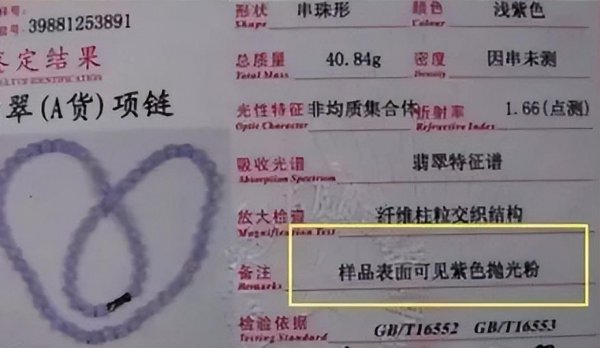 样号:
号: 39881253891
鉴定结果
翠(A货)项链
形状 串珠形 颜色 浅紫色
Shape Colour
总质量 40.84g 密度 因串未测
Total Mass Density
光性特征 非均质集合体 折射率 1.66(点测)
Optic Character Refractive Index
吸收光谱 翡翠特征谱
Absorption Spectrum
放大检查 纤维柱粒交织结构
Magnification Test
备注 样品表面可见紫色抛光粉
Remarks
检验依据 GB/T16552 GB/T16553
Testing Standard